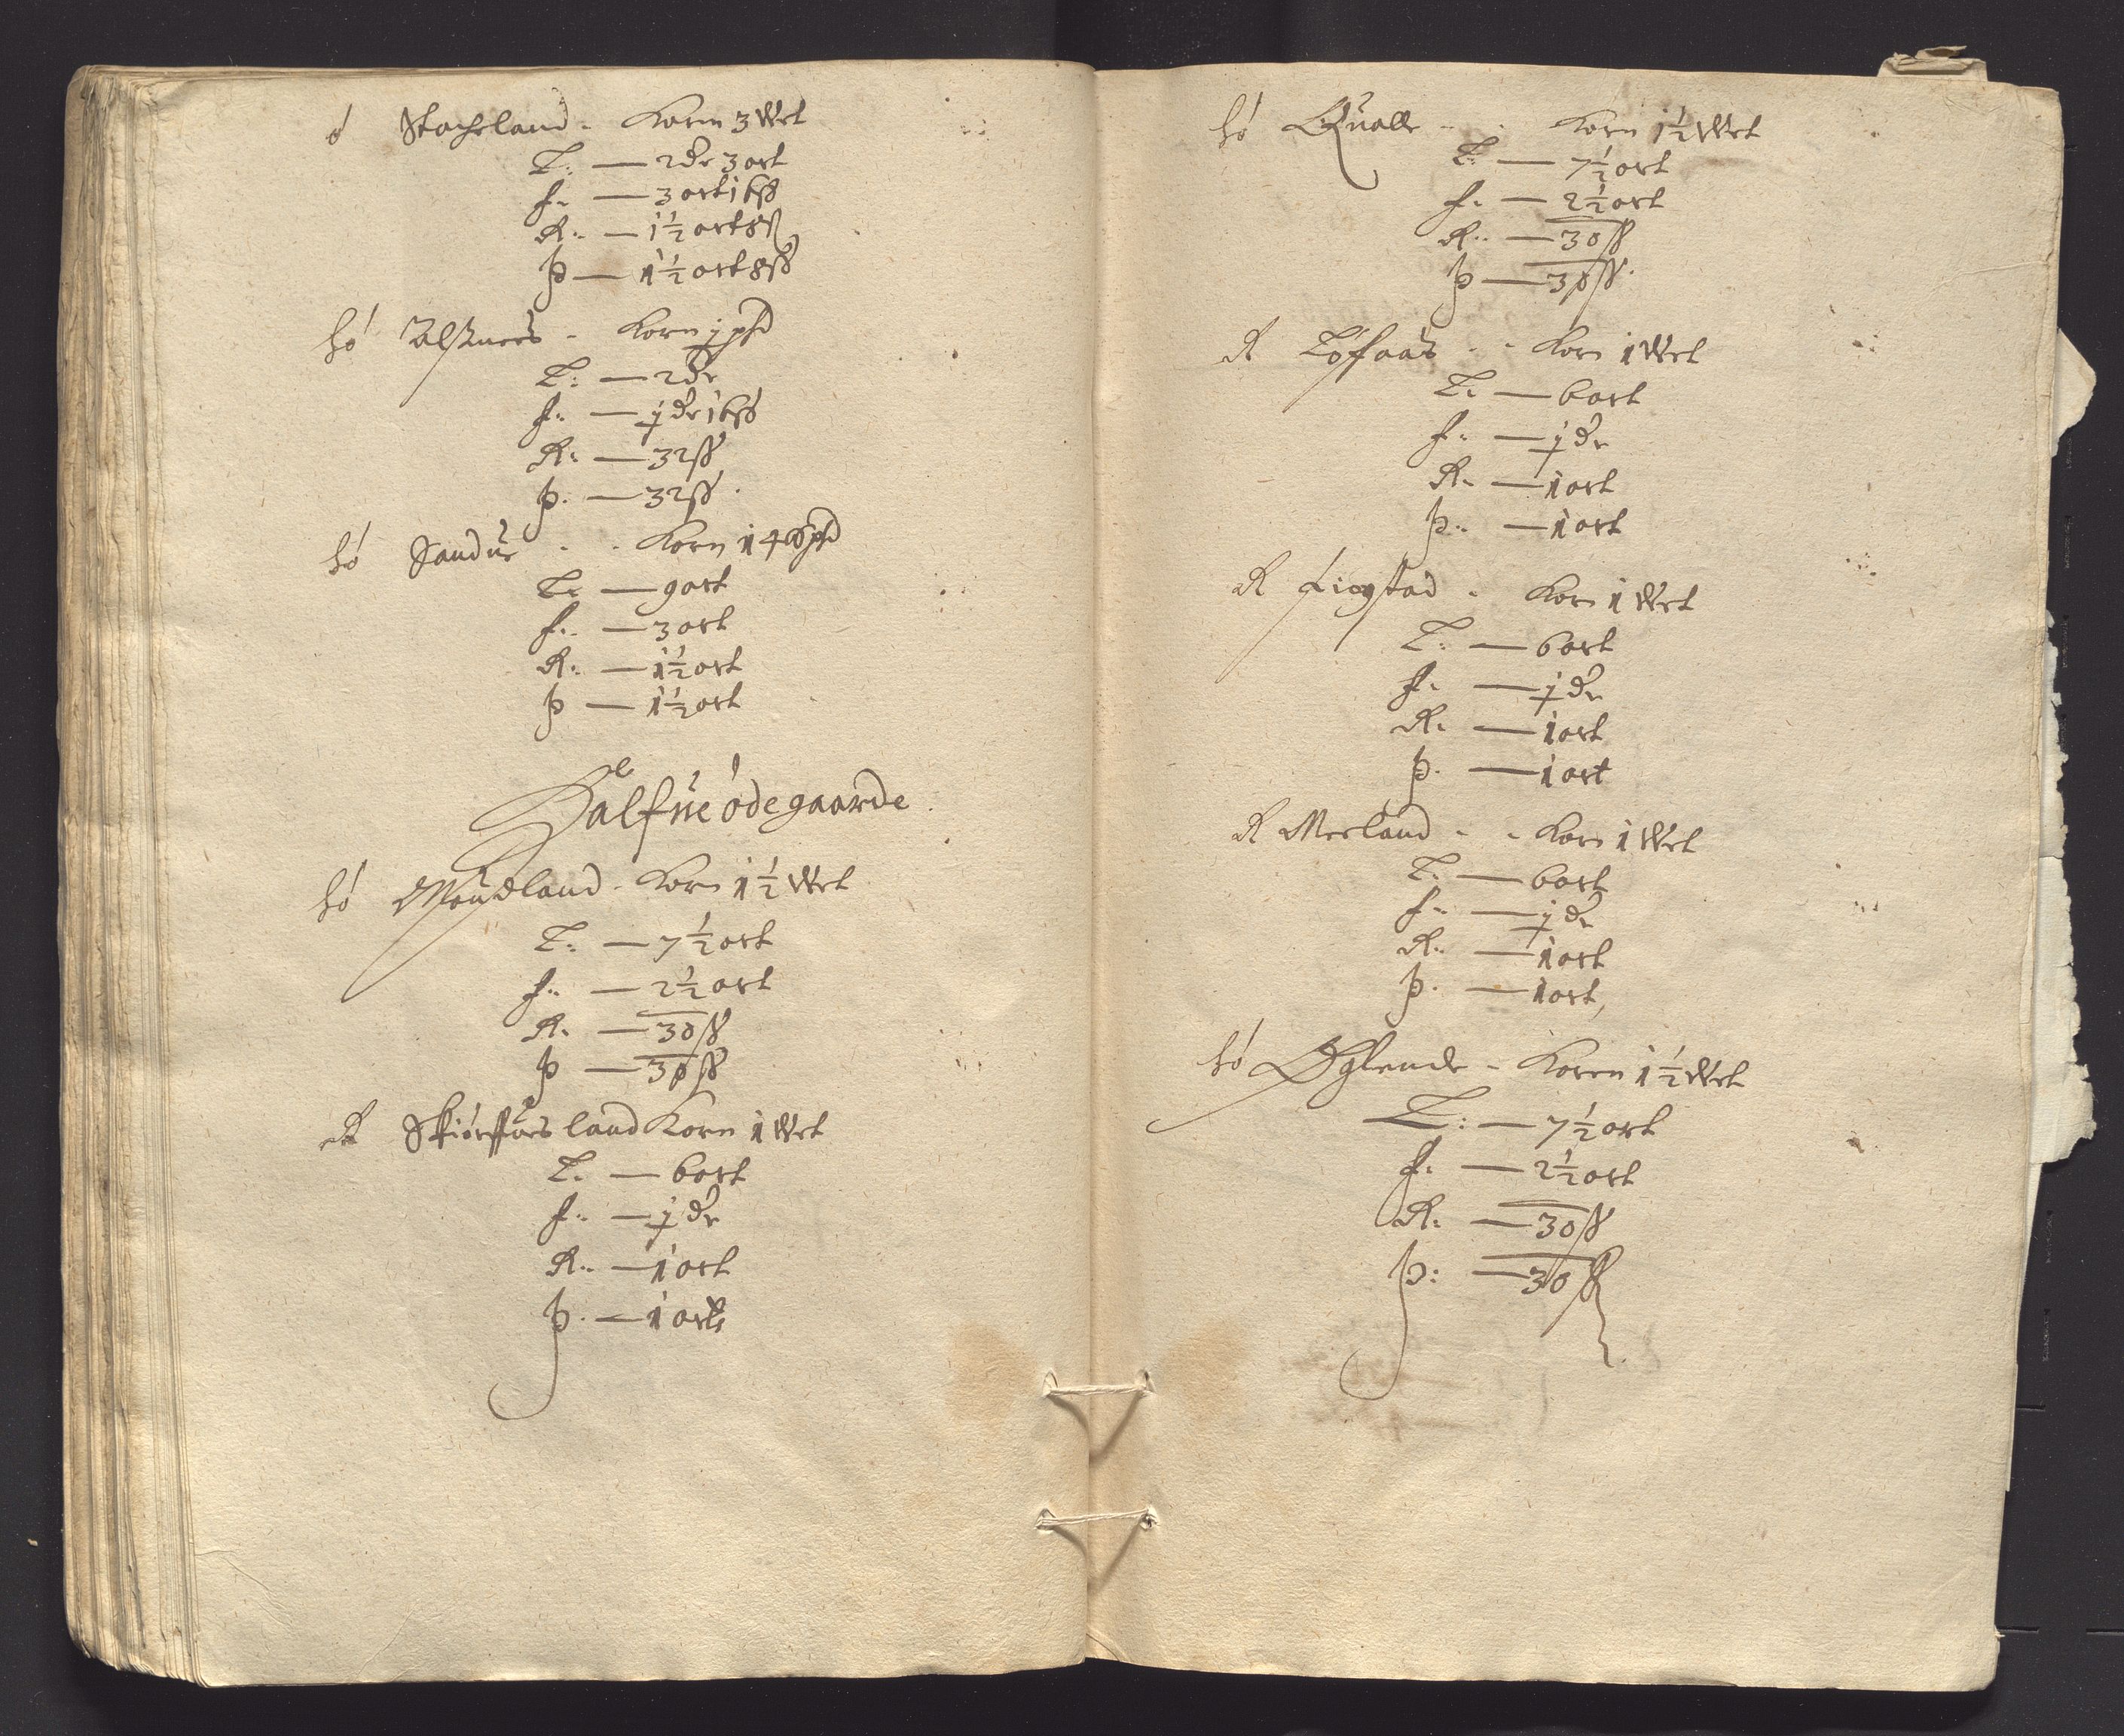 ó Stocheland - Korn 3 Wet
T: — 2 dr 3 ort
f: — 3 ort 16 ß
R: — 1½ ort 8 ß
Þ — 1½ ort 8 ß
hó Alsnees - Korn j pd
T: — 2 dr
f: — j dr 16 ß
R: — 32 ß
Þ. — 32 ß.
hó Sandue - - Korn 14 pd
T: — 9 ort
f: — 3 ort
R: — 1½ ort
Þ — 1½ ort
Halfue ódegaarde
hó Mondland - Korn 1½ Wet
T: — 7½ ort
f: — 2½ ort
R: — 30 ß
Þ — 30 ß
R land Korn 1 Wet
T. — 6 ort
f: — j dr
R: — 1 ort
Þ. — 1 ort
hó Qualle - - Korn 1½ Wet
T: — 7½ ort
f: — 2½ ort
R: — 30 ß
Þ — 30 ß.
R Tófaas - - Korn 1 Wet
T: — 6 ort
f: — j dr
R: — 1 ort
Þ: — 1 ort
R Ligstad - Korn 1 Wet
T: — 6 ort
f: — j dr
R: — 1 ort
Þ. — 1 ort
R Meeland - - Korn 1 Wet
T: — 6 ort
f: — j dr
R: — 1 ort
Þ. — 1 ort,
hó Óglende - Korn 1½ Wet
T: — 7½ ort
f: — 2½ ort
R: — 30 ß
Þ: — 30 ß